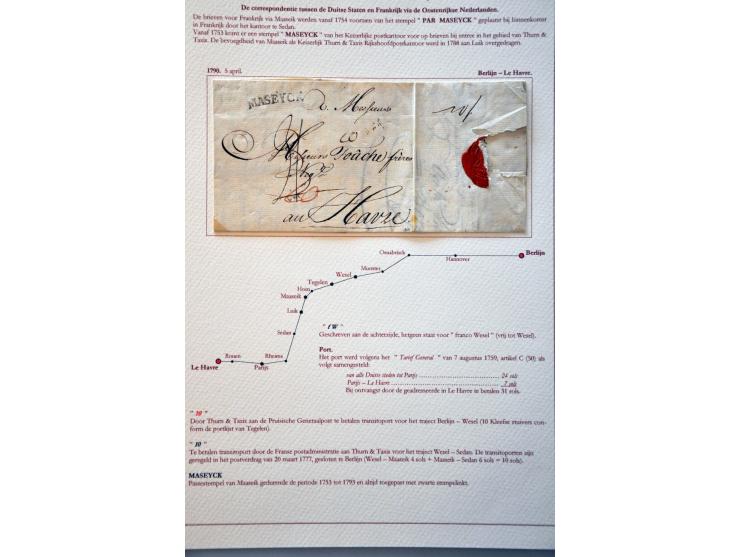 De correspondentie tussen de Duitse Staten en Frankrijk via de Oostenrijkse Nederlanden.
De brieven voor Frankrijk via Maaseik werden vanaf 1754 voorzien van het stempel " PAR MASEYCK " geplaatst bij binnenkomst
in Frankrijk door het kantoor te Sedan.
Vanaf 1753 komt er een stempel " MASEYCK " van het Keizerlijke postkantoor voor op brieven bij entree in het gebied van Thurn &
Taxis. De bevoegdheid van Maaseik als Keizerlijk Thurn & Taxis Rijkshoofdpostkantoor werd in 1788 aan Luik overgedragen.
1790. 5 april. Berlijn – Le Havre.
MASEYCK
Messieurs
frères
au Havre
Osnabrück
Hannover
Berlijn
Munster
Wesel
Tegelen
Horn
Maaseik
Luik
Sedan
Rouen
Rheims
Le Havre
Parijs
" f W "
Geschreven aan de achterzijde, hetgeen staat voor " franco Wesel " (vrij tot Wesel).
Port.
Het port werd volgens het " Tarief General " van 7 augustus 1759, artikel C (50) als
volgt samengesteld:
van alle Duitse steden tot Parijs 24 sols
Parijs – Le Havre 7 sols
Bij ontvangst door de geadresseerde in Le Havre te betalen 31 sols.
" 10 "
Door Thurn & Taxis aan de Pruisische Generaalpost te betalen transitoport voor het traject Berlijn – Wesel (10 Kleefse stuivers con-
form de portlijst van Tegelen).
" 10 "
Te betalen transitoport door de Franse postadministratie aan Thurn & Taxis voor het traject Wesel – Sedan. De transitoporten zijn
geregeld in het postverdrag van 20 maart 1777, gesloten te Berlijn (Wesel – Maaseik 4 sols + Maaseik – Sedan 6 sols = 10 sols).
MASEYCK
Passestempel van Maaseik gedurende de periode 1753 tot 1793 en altijd toegepast met zwarte stempelinkt.